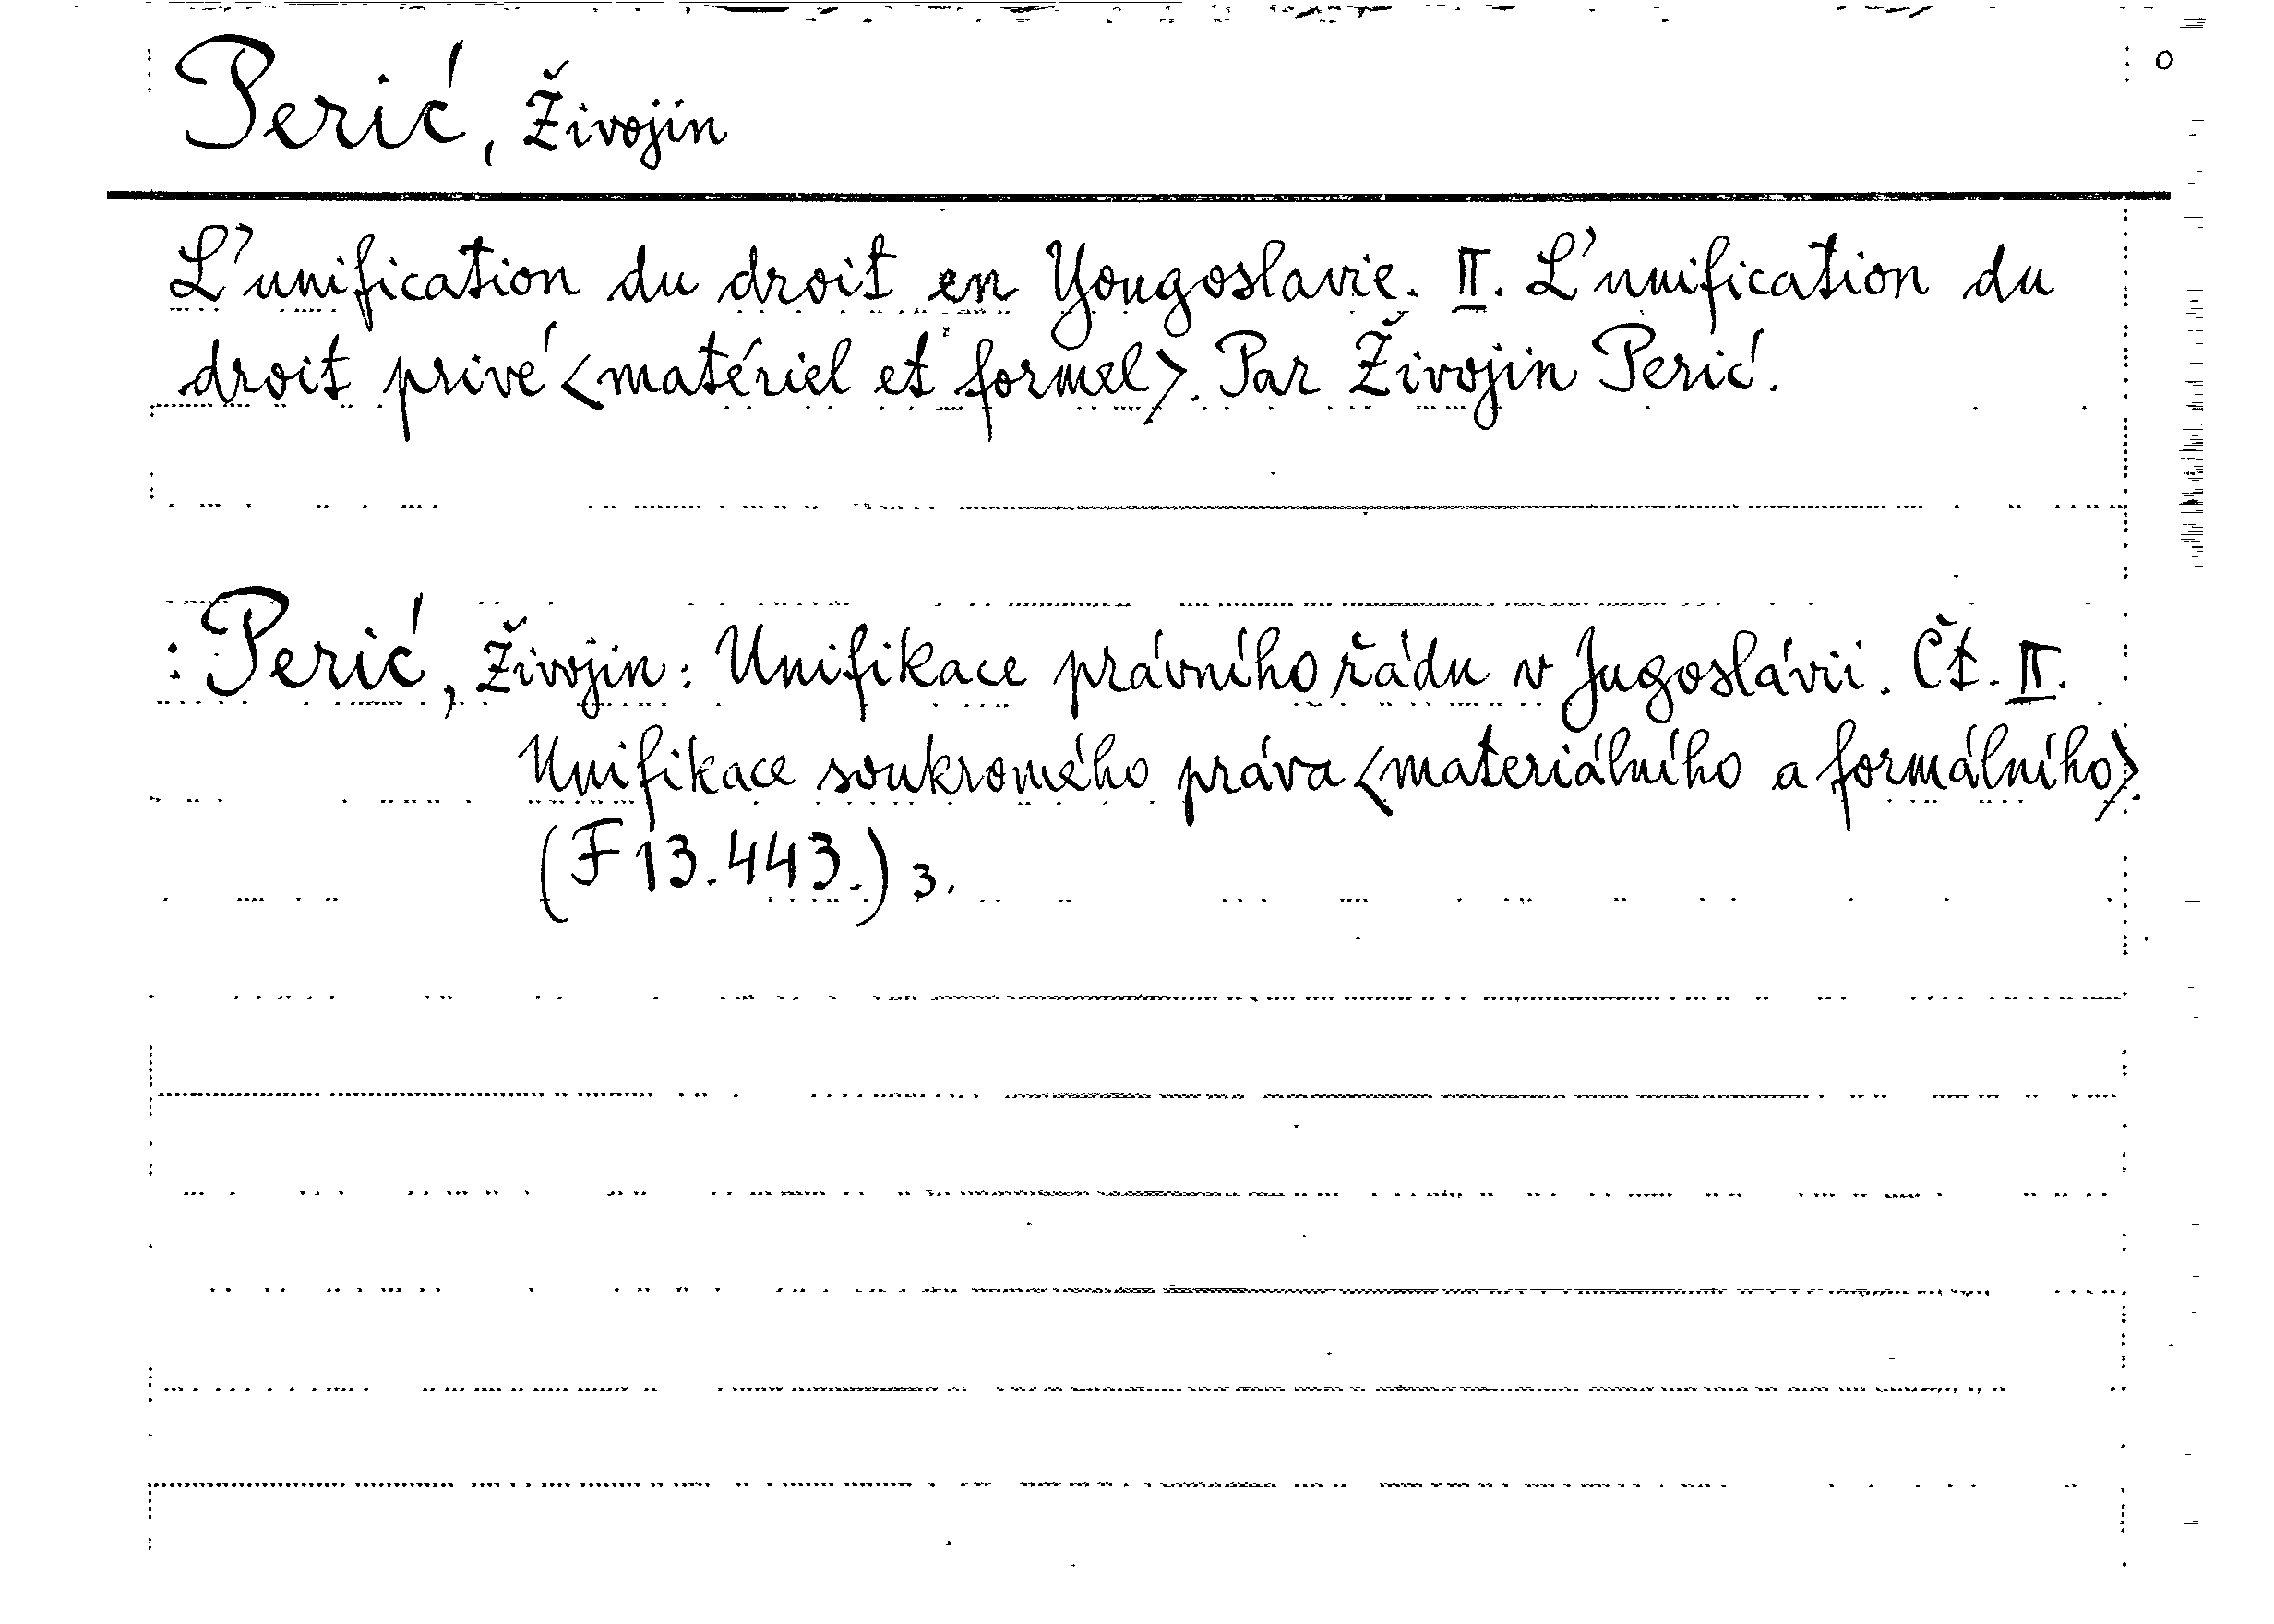 Perić, Živojin
o
L'unification du droit en Yougoslavie. II. L'unification du
droit privé <matériel et formel>. Par Živojin Perić.
: Perić, Živojin: Unifikace právního řádu v Jugoslávii. Čt. II.
Unifikace soukromého práva <materiálního a formálního>.
(F 13.443.) 3.